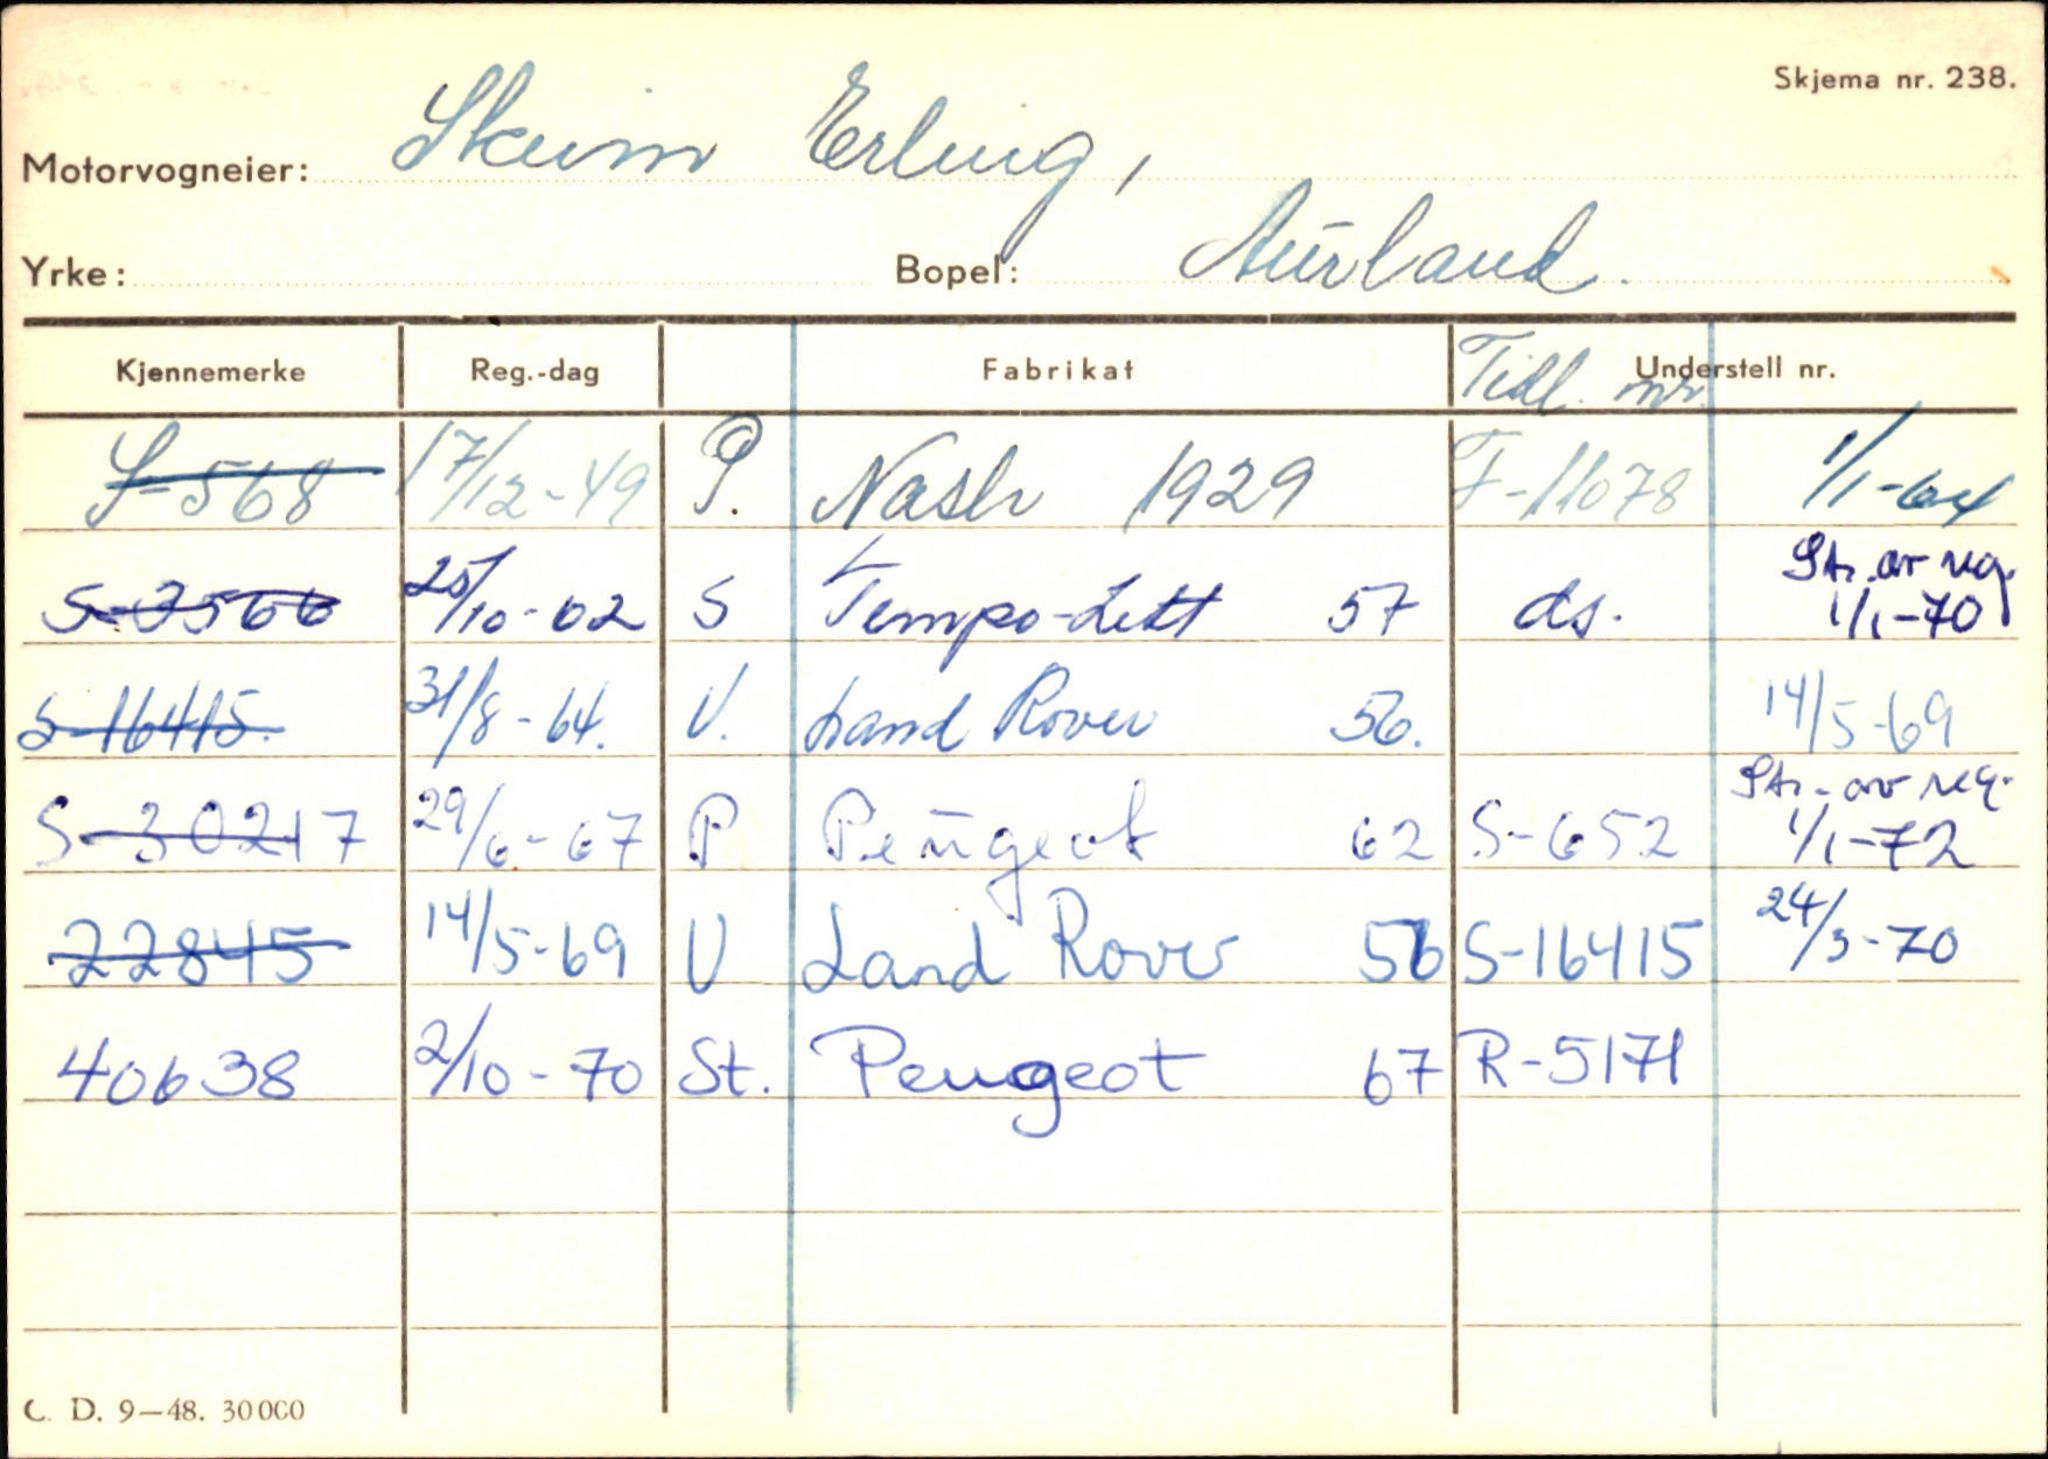 Skjema nr. 238.
Motorvogneier: Skeim Erling,
Yrke: Bopel: Aurland.
Kjennemerke Reg.-dag Fabrikat Tidl. nr. Understell nr.
S-568 17/12-49 P. Nash 1929 F-11078 1/1-64
S-3566 25/10-62 S Tempo-Lett 57 ds. Str. av reg. 1/1-70
S-16415. 31/8-64. V. Land Rover 56. 14/5-69
S-30217 29/6-67 P Peugeot 62 S-652 Str. av reg. 1/1-72
22845 14/5-69 V Land Rover 56 S-16415 24/3-70
40638 2/10-70 St. Peugeot 67 R-5171
C. D. 9—48. 30000